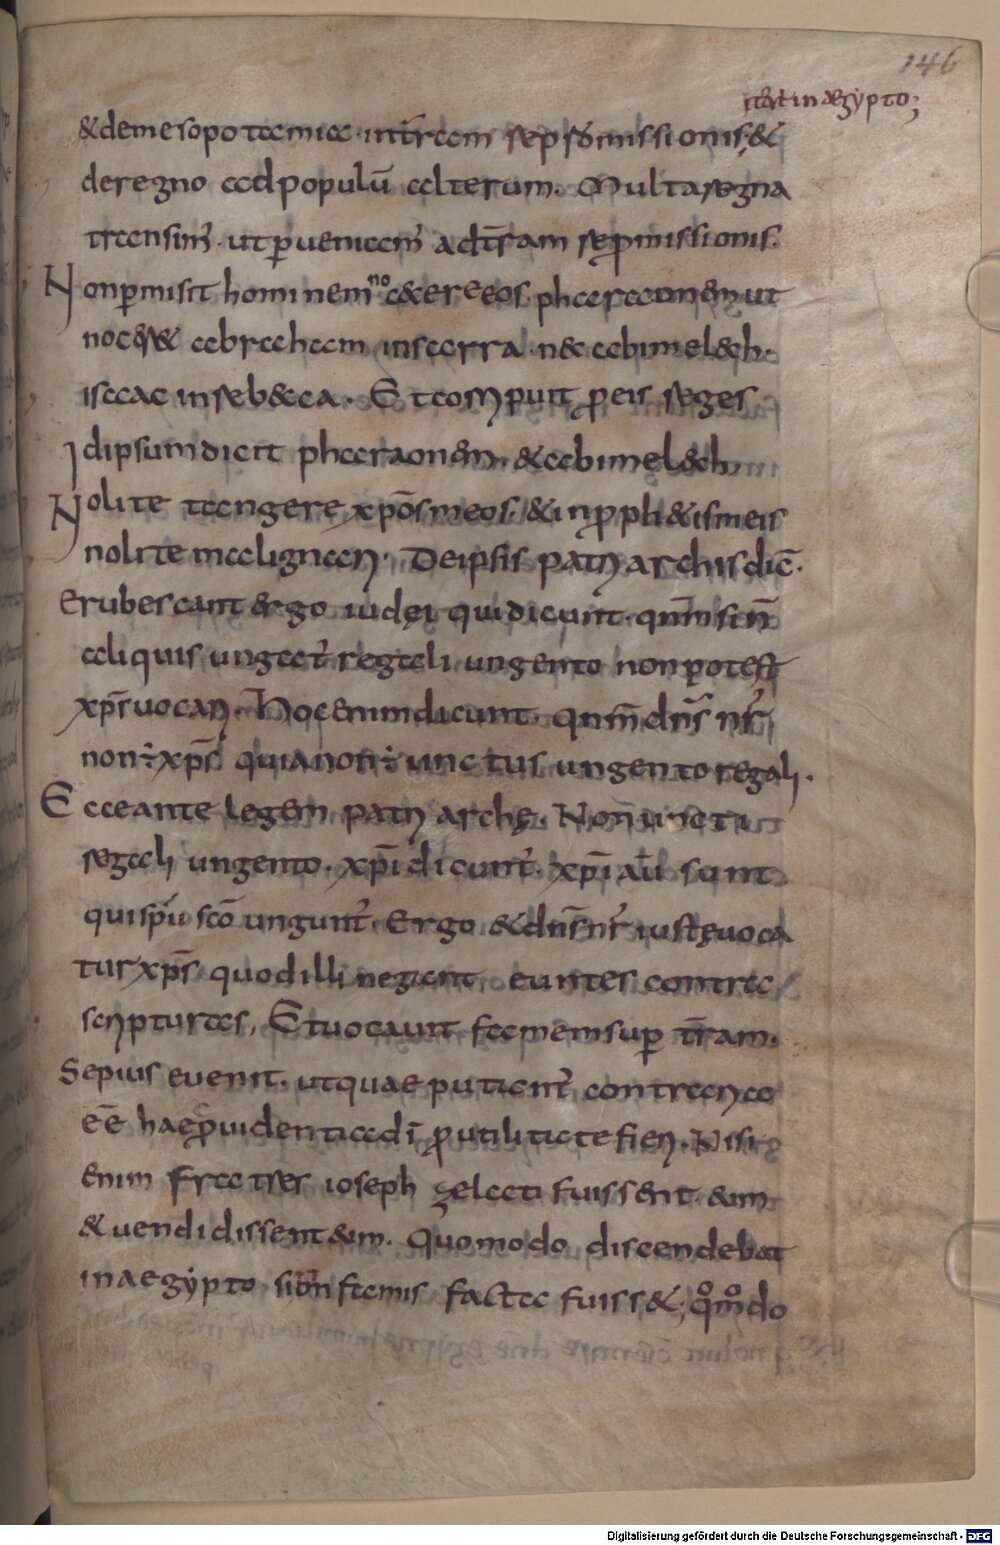 146
iter̄ in ægypto;
&demesopotamia. int̄ram repromissionis; &
deregno adpopulū alterum. Multaregna
transier̄. utꝑueniam̄ adt̄ram repmissionis.
Nonꝑmisit hominem no c&ereeos. pharaonem ut
noc&& abraham insarra. n& abimelech.
isaac inrebecca. Et corripuit ꝓeis reges
Idipsumdicit pharaonem. &abimelech.
Nolite tangere xp̄os meos. & inꝓph&ismeis
nolitemalignari. Deipsis patriarchisdic̄.
Erubescant ergo iudęi quidicunt. qnm̄ sin̄
aliquis unguet̄ regali ungento nonpotest
xp̄s uocari. Hoc enimdicunt. qnm̄ dn̄s nr̄
non÷xp̄s quianon÷ unctus ungento regali.
Ecceante legem patriarchę. Non uncti
regali ungento. xp̄i dicunt̄. xp̄i aū sunt
quisp̄u sc̄o ungunt̄. Ergo &dn̄s nr̄ iustęuoca
turxp̄s quodilli negant euntes contra
scripturas, Etuocauit famemsuꝑ t̄ram.
Sepius euenit. utquae putant̄ contraria
eē haeꝓuidentiadī ꝓutilitate fieri. Nisi
enim fratres ioseph zelati fuissent. eum
&uendidissent eum. Quomodo discendebat
inaegypto sienim famis facta fuiss&; qm̊do